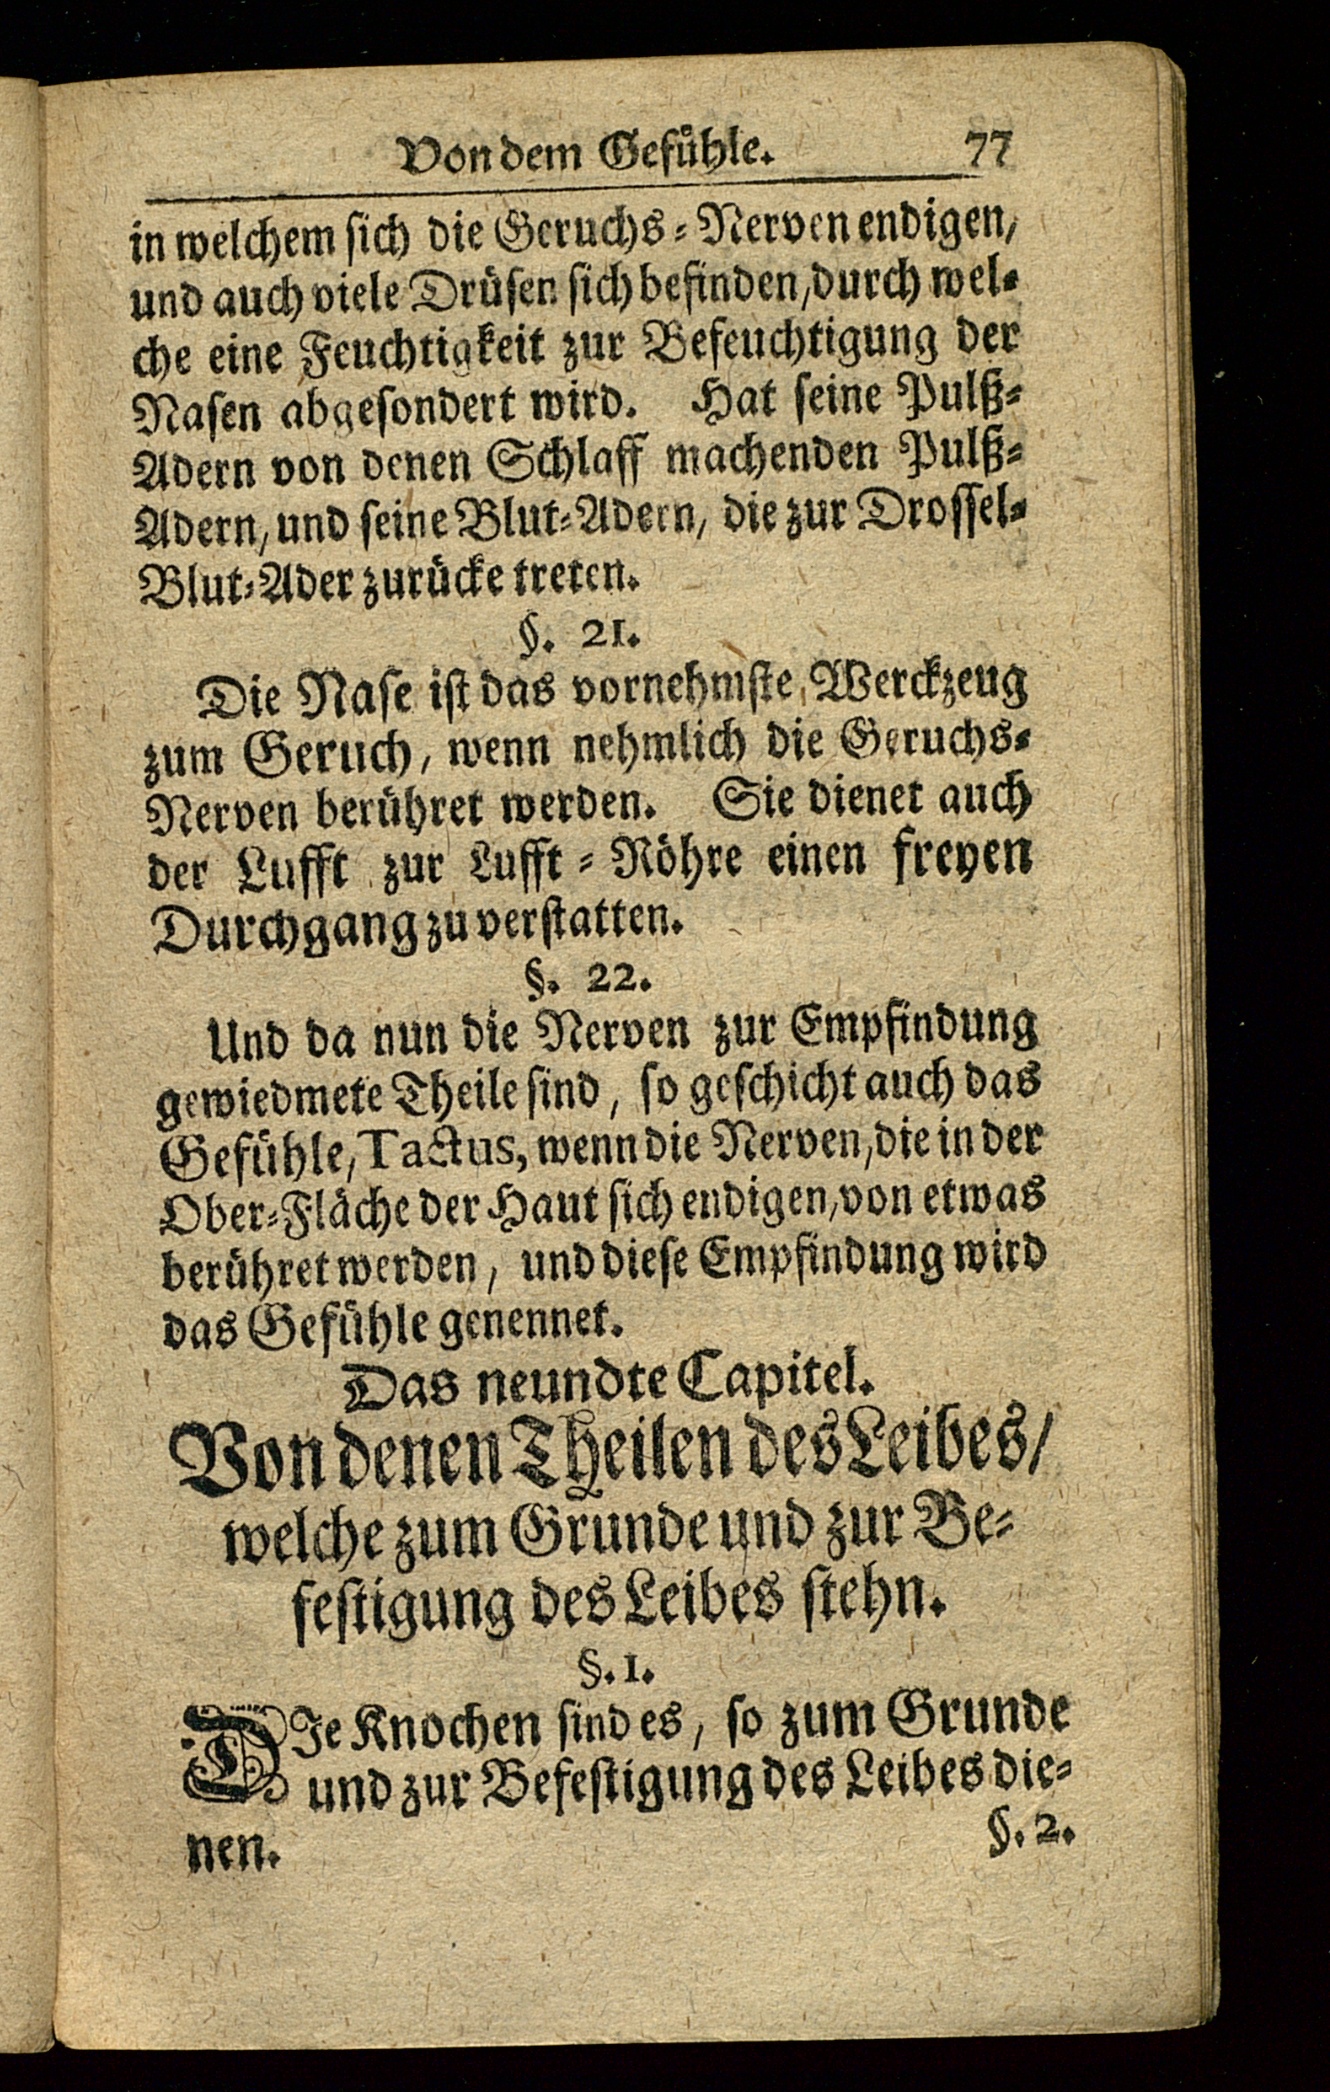 Von dem Gefühle. 77
in welchem sich die Geruchs-Nerven endigen,
und auch viele Drüsen sich befinden, durch wel-
che eine Feuchtigkeit zur Befeuchtigung der
Nasen abgesondert wird. Hat seine Pulß-
Adern von denen Schlaff machenden Pulß-
Adern, und seine Blut-Adern, die zur Drossel-
Blut-Ader zurücke treten.
§. 21.
Die Nase ist das vornehmste Werckzeug
zum Geruch, wenn nehmlich die Geruchs-
Nerven berühret werden. Sie dienet auch
der Lufft zur Lufft-Röhre einen freyen
Durchgang zu verstatten.
§. 22.
Und da nun die Nerven zur Empfindung
gewiedmete Theile sind, so geschicht auch das
Gefühle, Tactus, wenn die Nerven, die in der
Ober-Fläche der Haut sich endigen, von etwas
berühret werden, und diese Empfindung wird
das Gefühle genennet.
Das neundte Capitel.
Von denen Theilen des Leibes/
welche zum Grunde und zur Be-
festigung des Leibes stehn.
§. 1.
DIe Knochen sind es, so zum Grunde
und zur Befestigung des Leibes die-
nen. §. 2.